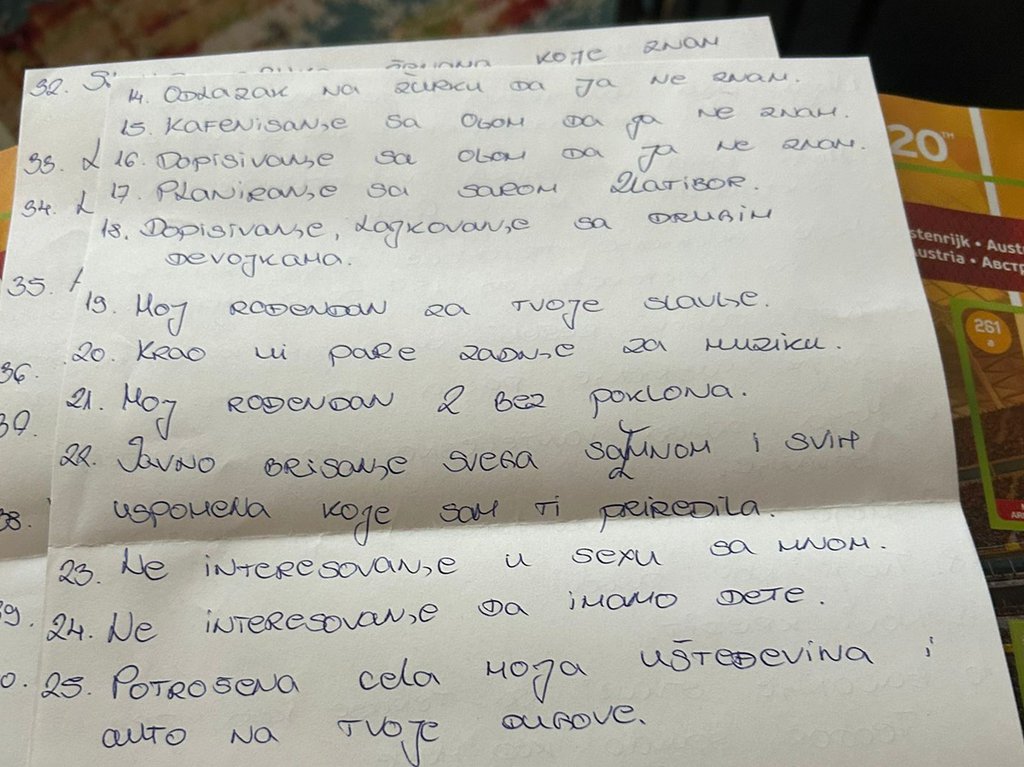 32.
KOJE ZNAM
14. ODLAZAK NA ŽURKU DA JA NE ZNAM.
15. KAFENISANJE SA OLOM DA JA NE ZNAM.
33. 16. DOPISIVANJE SA OLOM DA JA NE ZNAM.
34. 17. PLANIRANJE SA SAROM ZLATIBOR.
18. DOPISIVANJE, LAJKOVANJE SA DRUGIM
DEVOJKAMA.
35.
19. MOJ ROĐENDAN ZA TVOJE SLAVLJE.
20. KRAO MI PARE ZADNJE ZA MUZIKU.
36.
21. MOJ ROĐENDAN 2 BEZ POKLONA.
22. JAVNO BRISANJE SVEGA SA MNOM I SVIH
USPOMENA KOJE SAM TI PRIREDILA.
38.
23. NE INTERESOVANJE U SEXU SA MNOM.
24. NE INTERESOVANJE DA IMAMO DETE.
25. POTROŠENA CELA MOJA UŠTEĐEVINA I
AUTO NA TVOJE DUGOVE.
20™
stenrijk • Aust
ustria • Авст
261
a